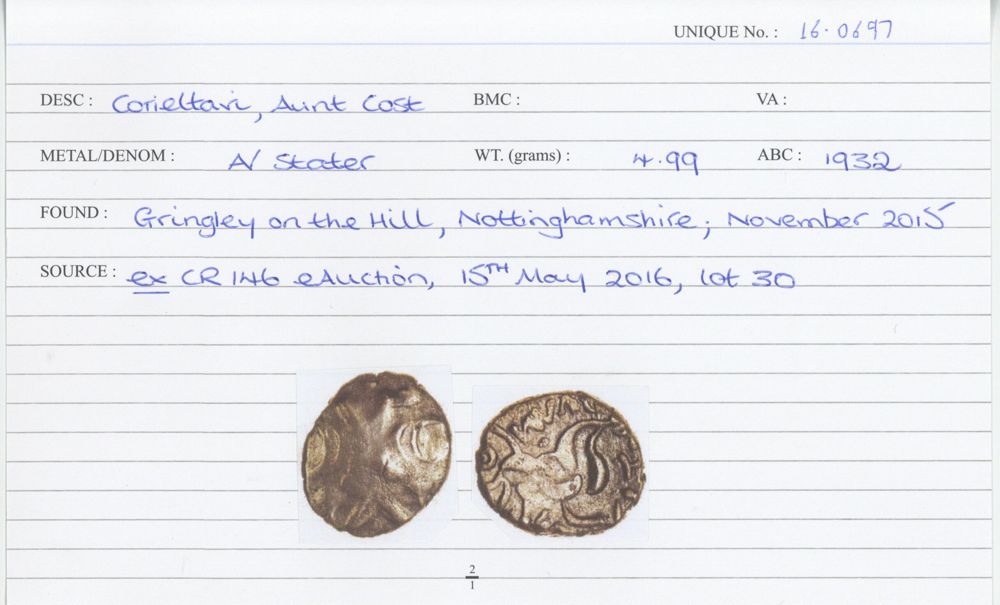 UNIQUE No. : 16·0697
DESC : Corieltavi, Aunt Cost BMC : VA :
METAL/DENOM : A/ Stater WT. (grams) : 4.99 ABC : 1932
FOUND : Gringley on the Hill, Nottinghamshire; November 2015
SOURCE : ex CR 146 eAuction, 15TH May 2016, lot 30
2
1